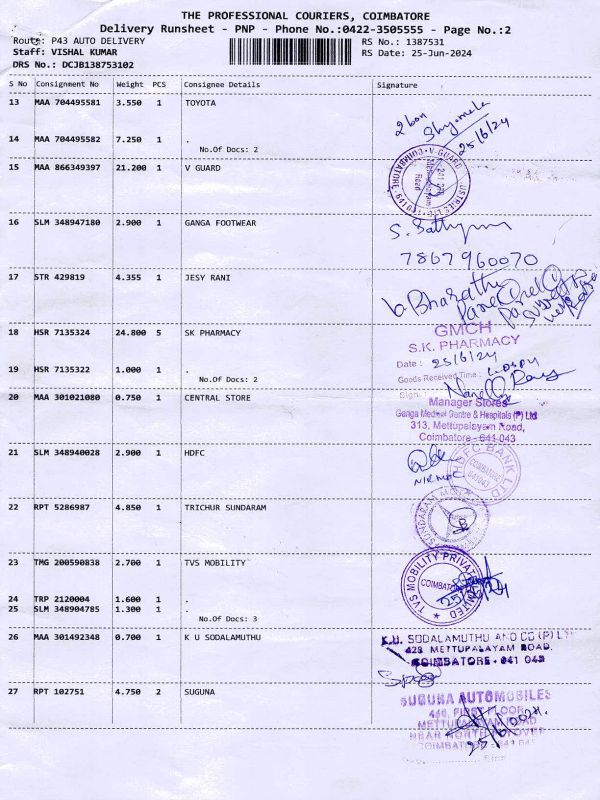 THE PROFESSIONAL COURIERS, COIMBATORE
Delivery Runsheet - PNP - Phone No.:0422-3505555 - Page No.:2
Route: P43 AUTO DELIVERY
RS No.: 1387531
Staff: VISHAL KUMAR
RS Date: 25-Jun-2024
DRS No.: DCJB138753102
S No Consignment No Weight PCS Consignee Details Signature
13 MAA 704495581 3.550 1 TOYOTA
2 box
Shyamala
25/6/24
14 MAA 704495582 7.250 1 .
No.Of Docs: 2
15 MAA 866349397 21.200 1 V GUARD
V-GUARD
COIMBATORE
16 SLM 348947180 2.900 1 GANGA FOOTWEAR
7867960070
17 STR 429819 4.355 1 JESY RANI
Bharathi
18 HSR 7135324 24.800 5 SK PHARMACY
GMCH
S.K. PHARMACY
Date : 25/6/24
19 HSR 7135322 1.000 1 .
Goods Received Time :
No.Of Docs: 2
20 MAA 301021080 0.750 1 CENTRAL STORE
Manager Stores
Ganga Medical Centre & Hospitals (P) Ltd
313, Mettupalayam Road,
Coimbatore - 641 043
21 SLM 348940028 2.900 1 HDFC
HDFC BANK LTD
COIMBATORE
641043
22 RPT 5286987 4.850 1 TRICHUR SUNDARAM
SUNDARAM
23 TMG 200590838 2.700 1 TVS MOBILITY
TVS MOBILITY PRIVATE LIMITED
COIMBATORE
24 TRP 2120004 1.600 1 .
25 SLM 348904785 1.300 1 .
No.Of Docs: 3
26 MAA 301492348 0.700 1 K U SODALAMUTHU
K.U. SODALAMUTHU AND CO (P) LT
METTUPALAYAM ROAD.
COIMBATORE - 641 043
27 RPT 102751 4.750 2 SUGUNA
SUGUNA AUTOMOBILES
FIRST FLOOR
METTUPALAYAM ROAD
NEAR NORTH